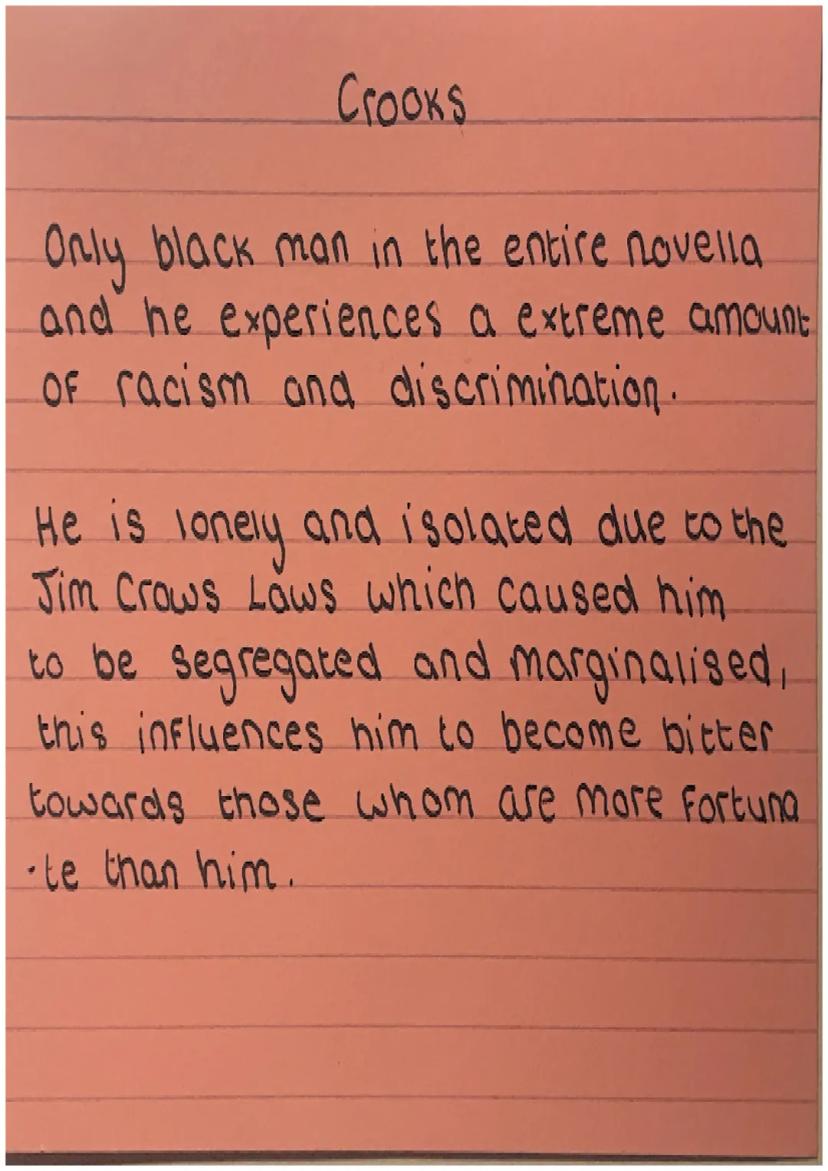 Crooks
Only black man in the entire novella
and he experiences a extreme amount
of racism and discrimination.
He is lonely and isolated due to the
Jim Crows Laws which caused him
to be segregated and marginalised,
this influences him to become bitter
towards those whom are more fortuna
-te than him.